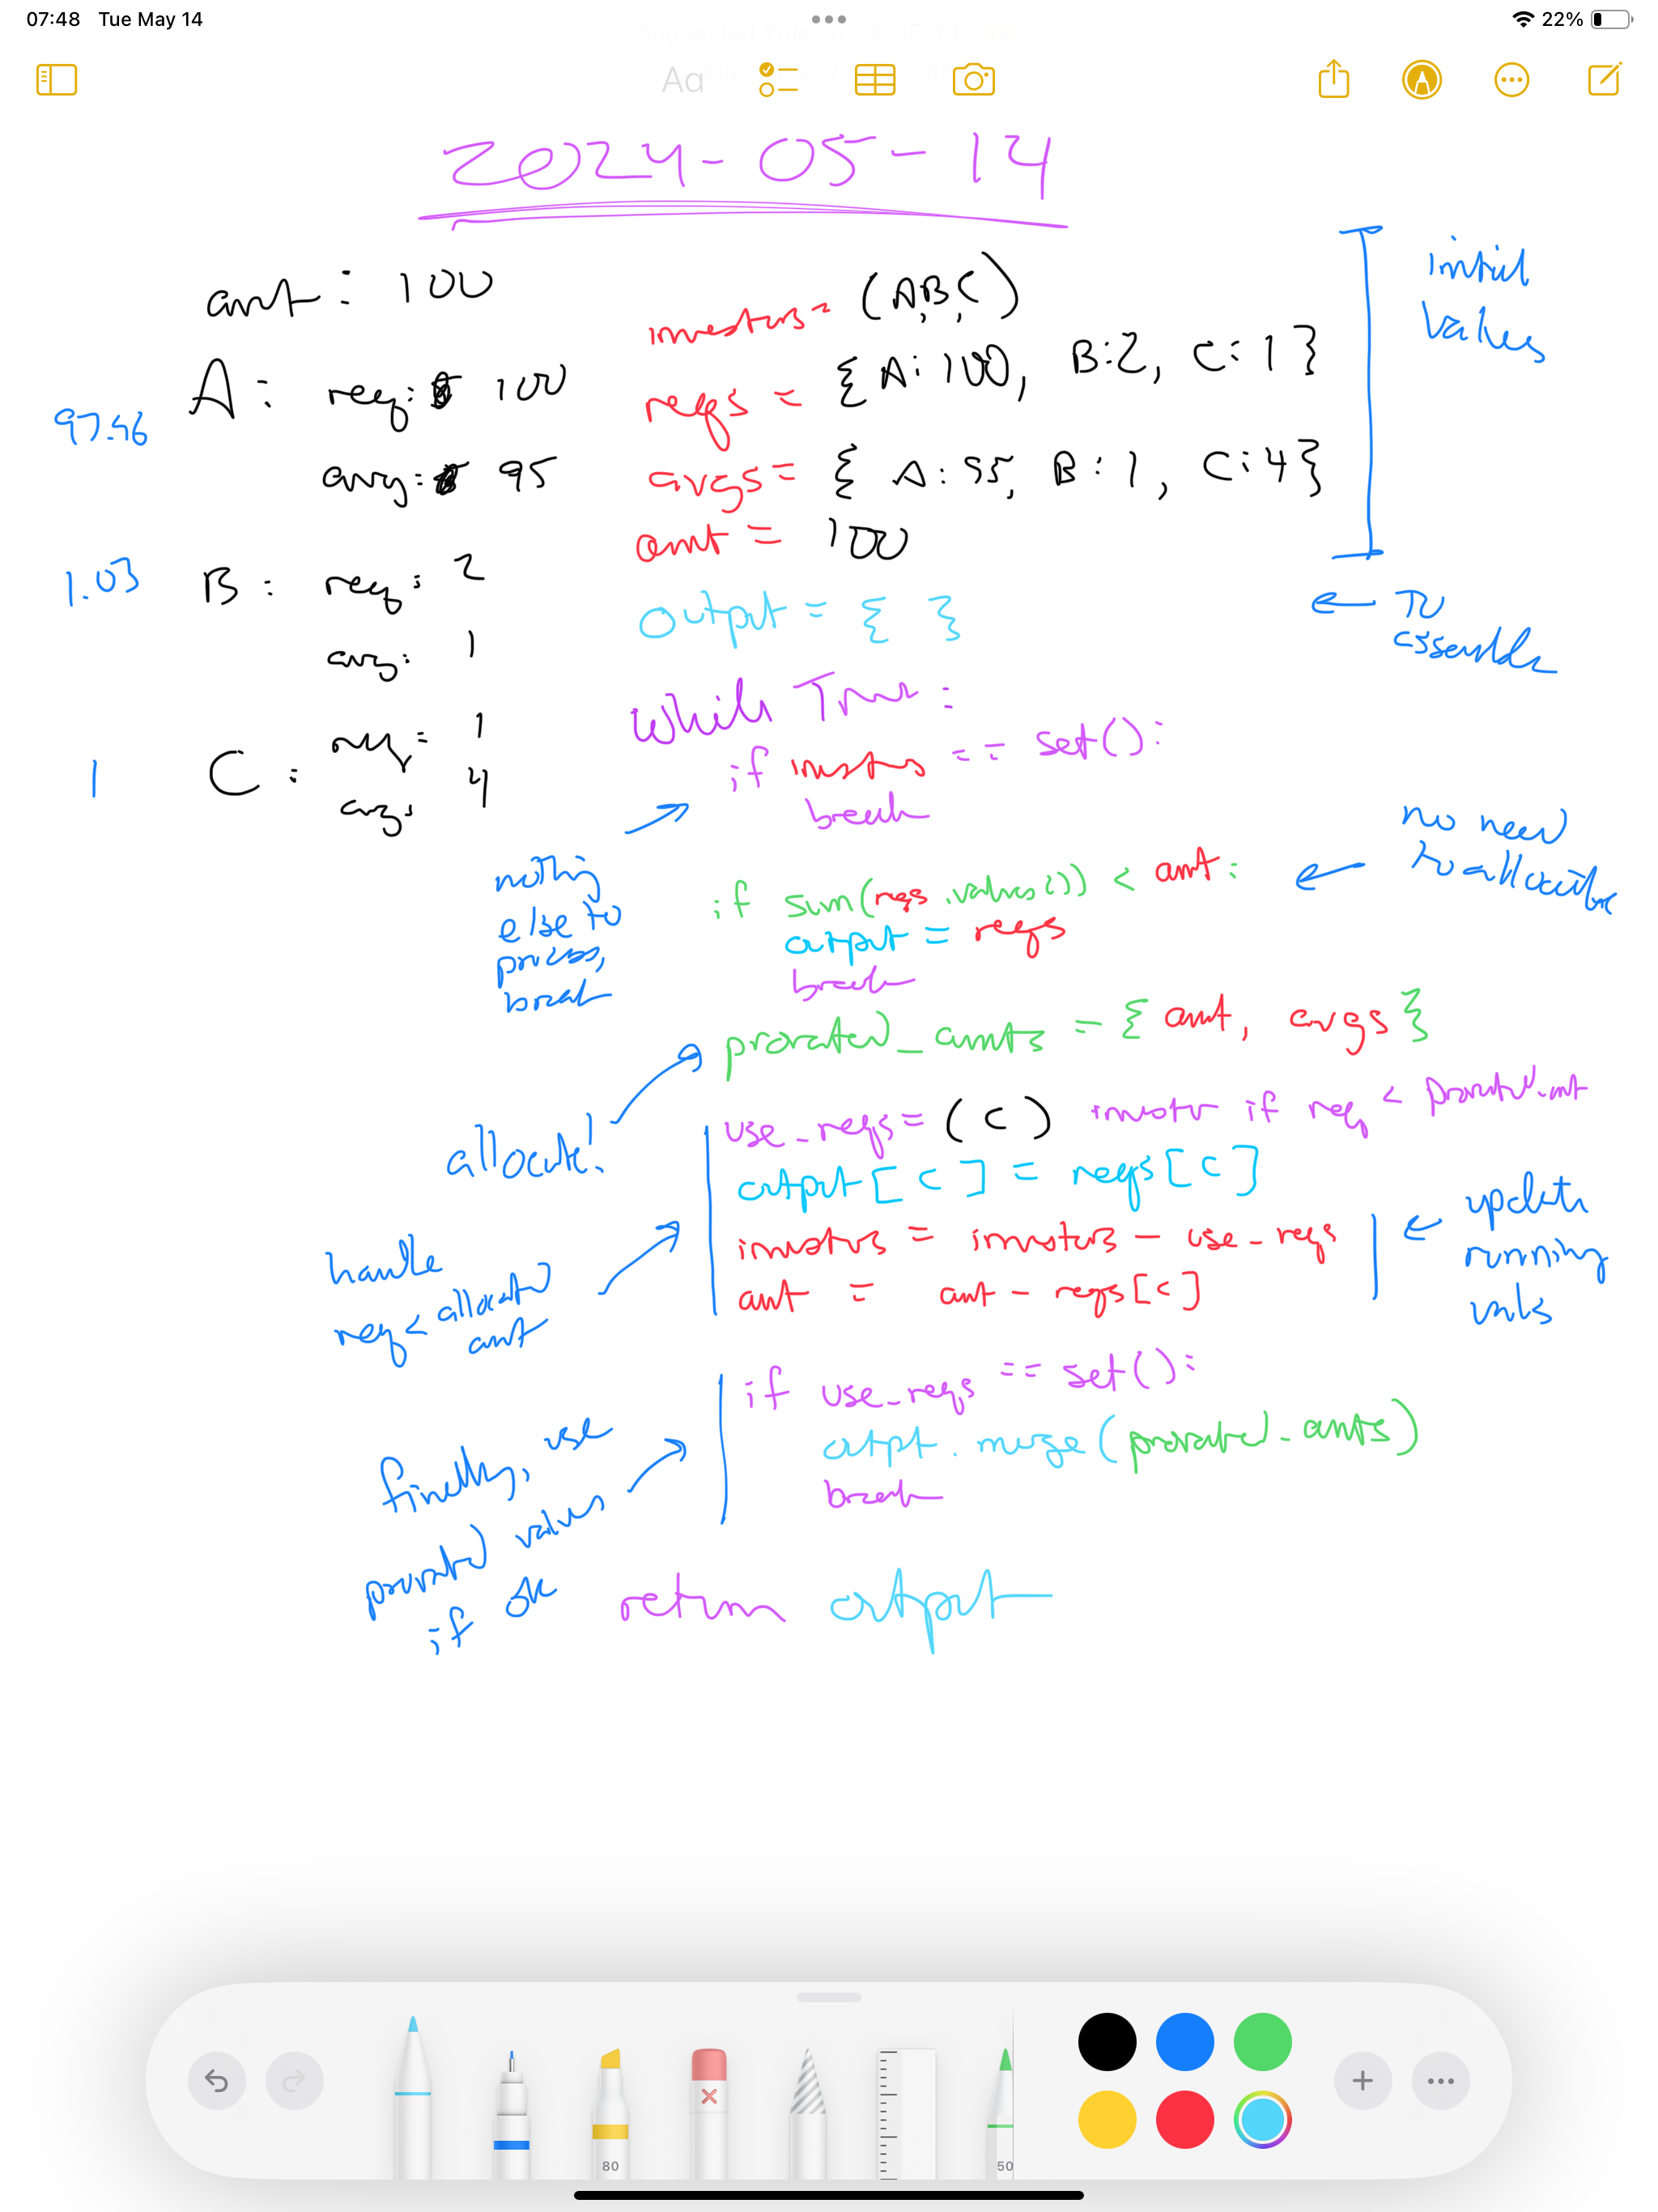 07:48 Tue May 14
22%
Aa
2024-05-14
amt: 100
A: req: 100
avg: 95
97.46
B: req: 2
avg: 1
1.03
C: req: 1
avg: 4
1
investors = (A,B,C)
reqs = { A: 100, B:2, C: 1 }
avgs = { A: 95, B: 1, C: 4 }
amt = 100
initial
values
output = { }
← to
assemble
while True:
if investors == set():
break
nothing
else to
process,
break
if sum(reqs.values()) < amt:
output = reqs
break
no need
to allocate
prorated_amts = { amt, avgs }
allocate!
use_reqs = (C) investor if req < prorated_amt
output[C] = reqs[C]
investors = investors - use_reqs
amt = amt - reqs[C]
handle
req < allocated
amt
update
running
vals
if use_reqs == set():
output.merge(prorated_amts)
break
finally, use
prorated values
if ok
return output
80
50